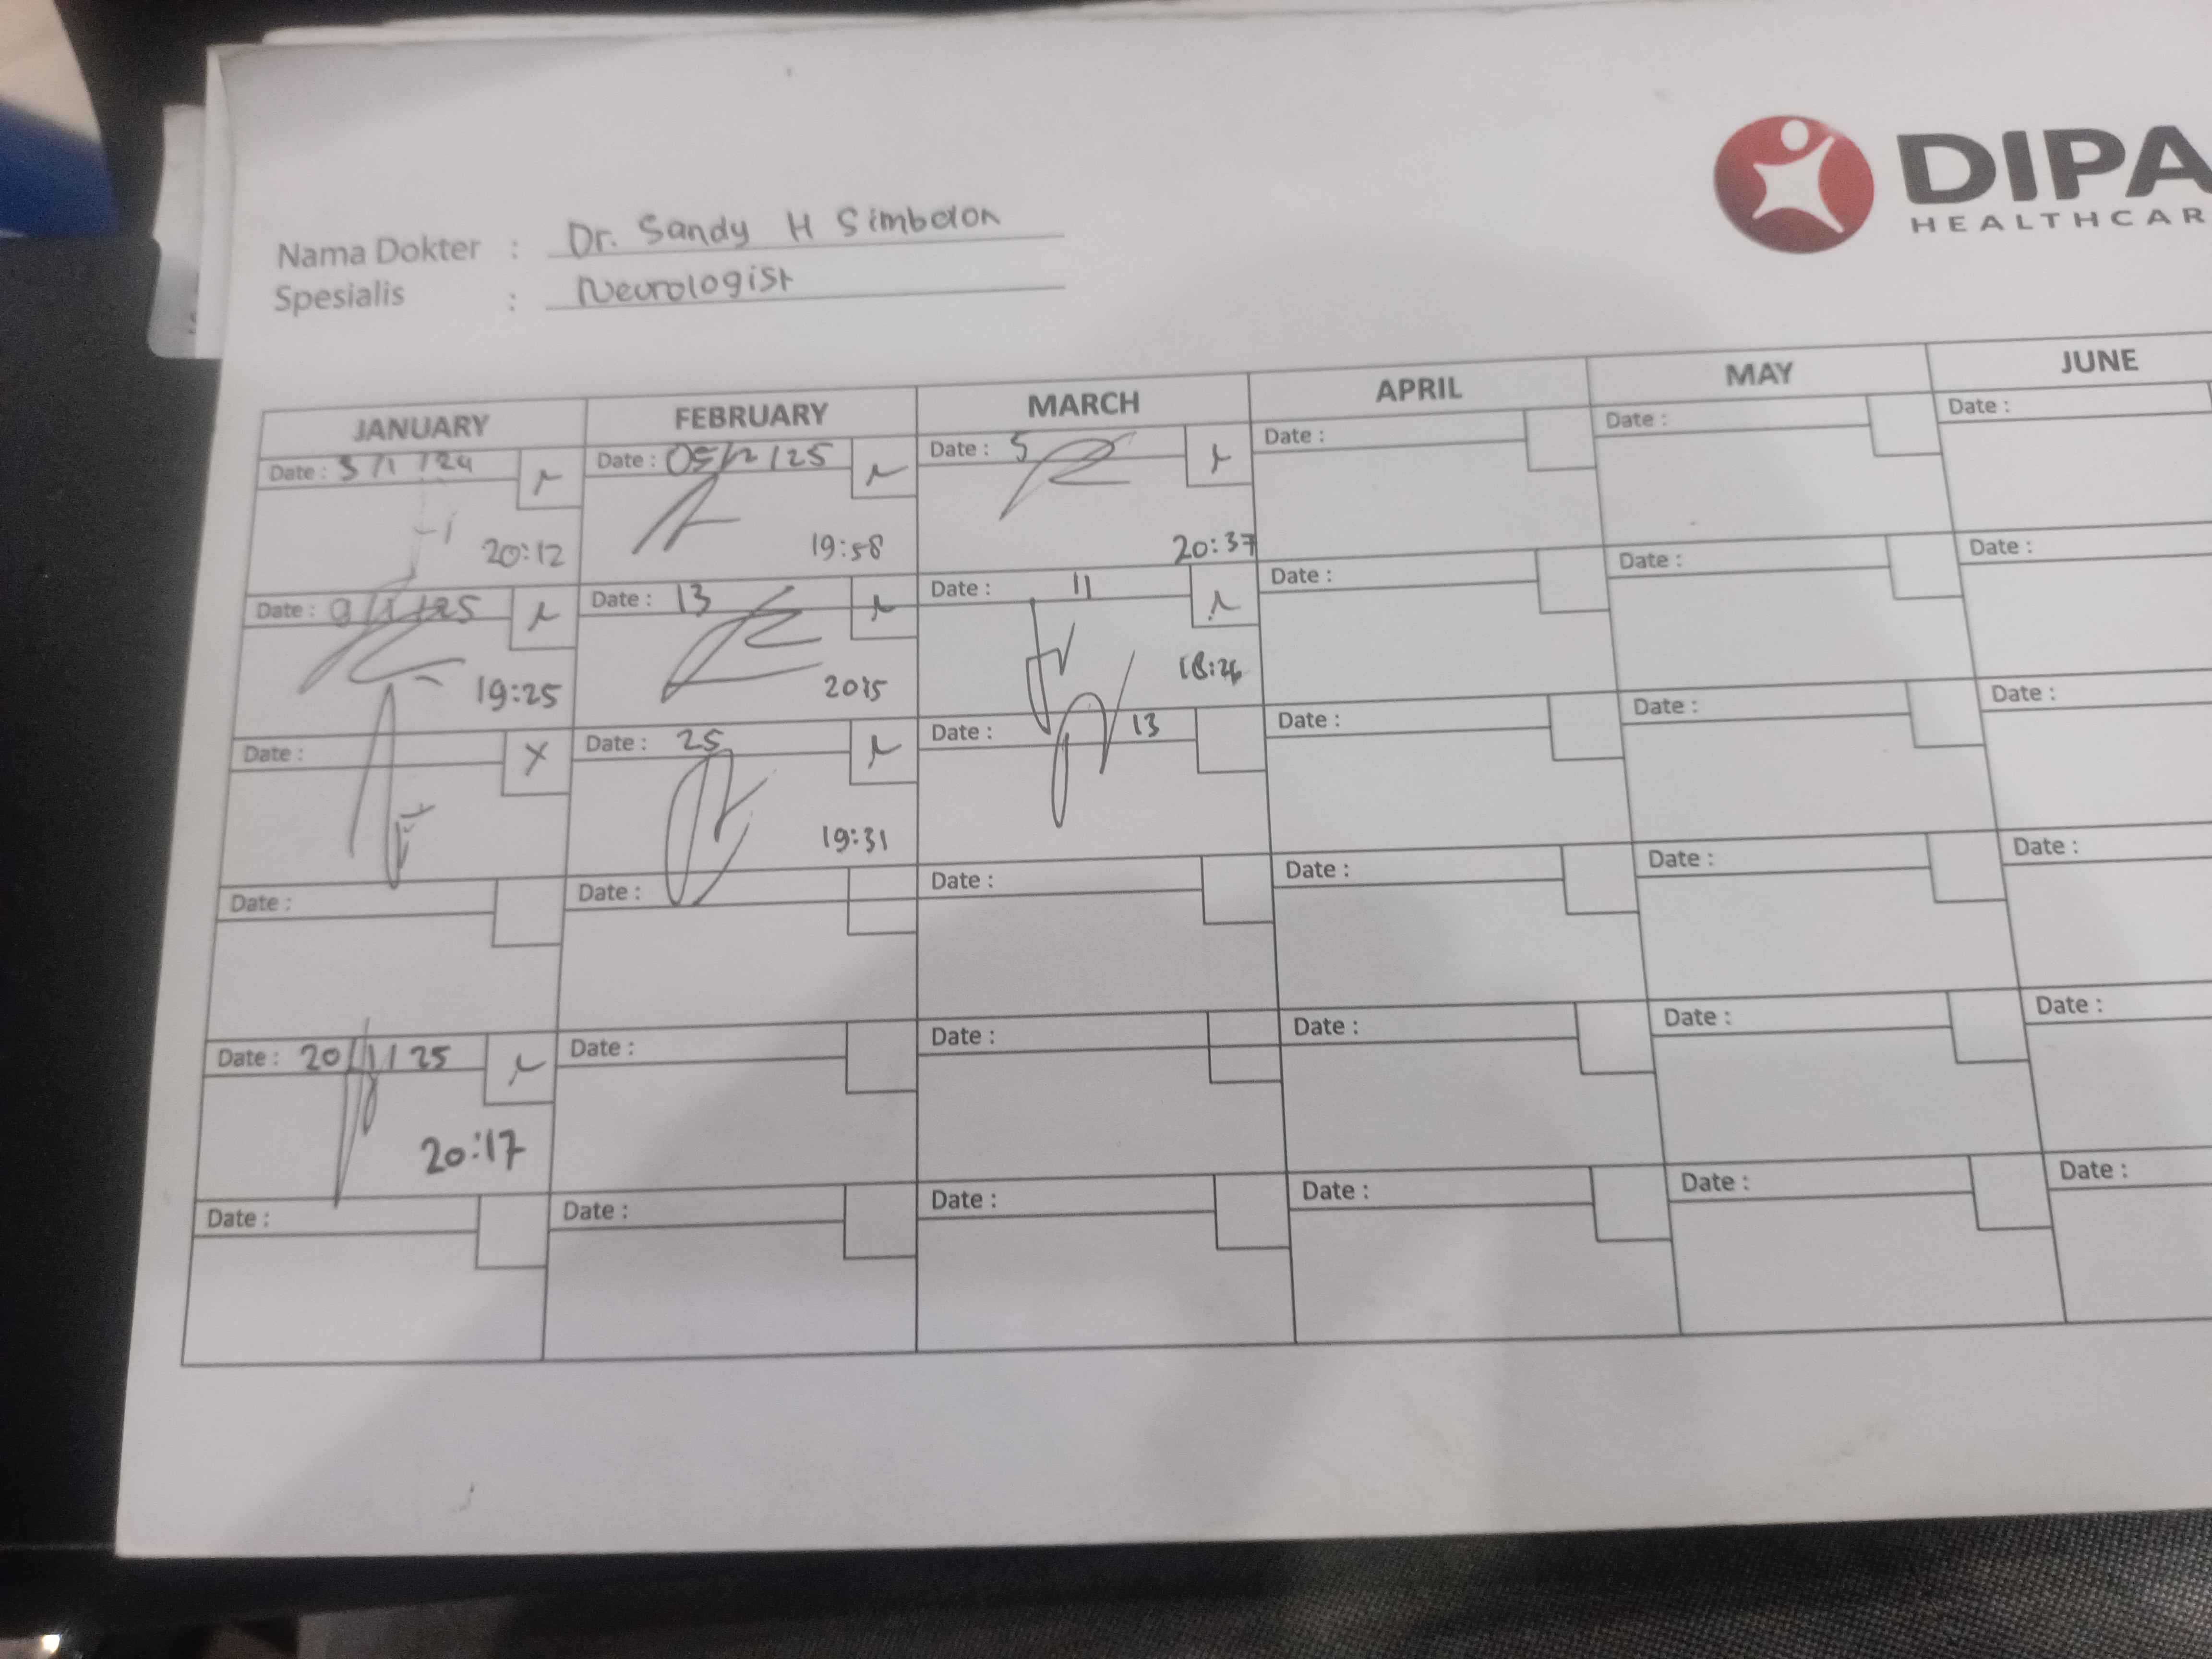 DIPA
HEALTHCAR
Nama Dokter : Dr. Sandy H Simbolon
Spesialis : Neurologist
JANUARY FEBRUARY MARCH APRIL MAY JUNE
Date : 3/1/24 Date : 05/2/25 Date : 5 Date : Date : Date :
20:12 19:58 20:37
Date : 9/1/25 Date : 13 Date : 11 Date : Date : Date :
19:25 2015 18:26
Date : X Date : 25 Date : 13 Date : Date : Date :
19:31
Date : Date : Date : Date : Date : Date :
Date : 20/1/25 Date : Date : Date : Date : Date :
20:17
Date : Date : Date : Date : Date : Date :